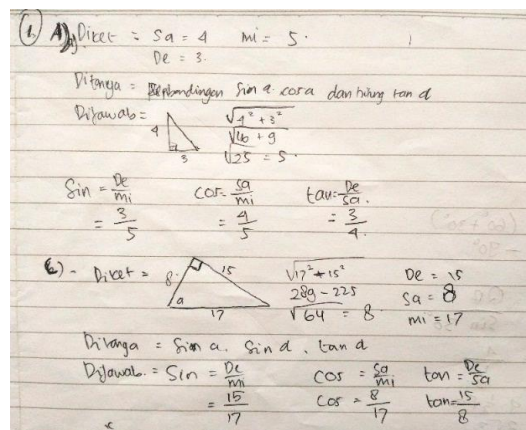 1. A) Diket = Sa = 4 mi = 5.
De = 3.
Ditanya = Perbandingan Sin a. cos a dan hitung tan a
Dijawab =
4
3
√4² + 3²
√16 + 9
√25 = 5.
Sin = De/mi cos = Sa/mi tan = De/Sa.
= 3/5 = 4/5 = 3/4.
b) - Diket =
8. 15
a
17
√17² + 15²
289 - 225
√64 = 8
De = 15
Sa = 8
mi = 17
Ditanya = Sin a. Sin a, tan a
Dijawab. = Sin = De/mi cos = Sa/mi tan = De/Sa
= 15/17 cos = 8/17 tan = 15/8